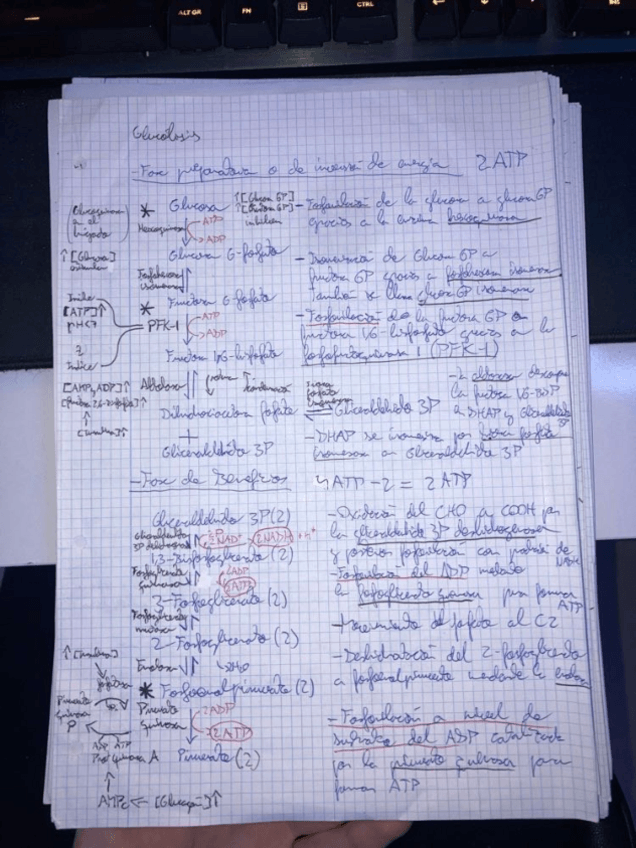 ALT GR
FN
CTRL
Glucólisis
-Fase preparativa o de inversión de energía 2 ATP
Glucoquinasa
en el
hígado
↑[Glucosa]
* Glucosa
Hexoquinasa
ATP
ADP
↑[Glucosa 6P]
inhiben
- Fosforilación de la glucosa a glucosa 6P
gracias a la enzima hexoquinasa
Glucosa 6-fosfato
Fosfohexosa
isomerasa
- Isomerización de Glucosa 6P a
fructosa 6P gracias a fosfohexosa isomerasa
También se llama glucosa 6P isomerasa
Inhibe
[ATP]↑
* Fructosa 6-fosfato
PFK-1
ATP
ADP
- Fosforilación de la fructosa 6P a
fructosa 1,6-bisfosfato gracias a la
fosfofructoquinasa 1 (PFK-1)
Fructosa 1,6-bisfosfato
[AMP, ADP]↑
[Fructosa 2,6-bisfosfato]↑
[Insulina]↑
Aldolasa
- La aldolasa
la fructosa 1,6-
a DHAP y Gliceraldehído
3P
Dihidroxiacetona fosfato
Triosa
fosfato
isomerasa
Gliceraldehído 3P
+
Gliceraldehído 3P
- DHAP se isomeriza por triosa fosfato
isomerasa a Gliceraldehído 3P
-Fase de Beneficios
4ATP - 2 = 2 ATP
Gliceraldehído 3P (2)
Gliceraldehído
3P deshidrogenasa
2NAD+
2NADH + H+
- Oxidación del CHO a COOH por
la gliceraldehído 3P deshidrogenasa
y posterior fosforilación con
NADH
1,3-Bisfosfoglicerato (2)
Fosfoglicerato
quinasa
2ADP
2ATP
- Fosforilación del ADP mediante
la fosfoglicerato quinasa para formar
ATP
3-Fosfoglicerato (2)
Fosfoglicerato
mutasa
- Movimiento del fosfato al C2
2-Fosfoglicerato (2)
Enolasa
H2O
- Deshidratación del 2-fosfoglicerato
a fosfoenolpiruvato mediante la enolasa
↑[Insulina]
fosfatasa
Piruvato
quinasa
P
ADP ATP
Prot quinasa A
AMPc ← [Glucagón]↑
* Fosfoenolpiruvato (2)
Piruvato
quinasa
2ADP
2ATP
- Fosforilación a nivel de
sustrato del ADP catalizada
por la piruvato quinasa para
formar ATP
Piruvato (2)